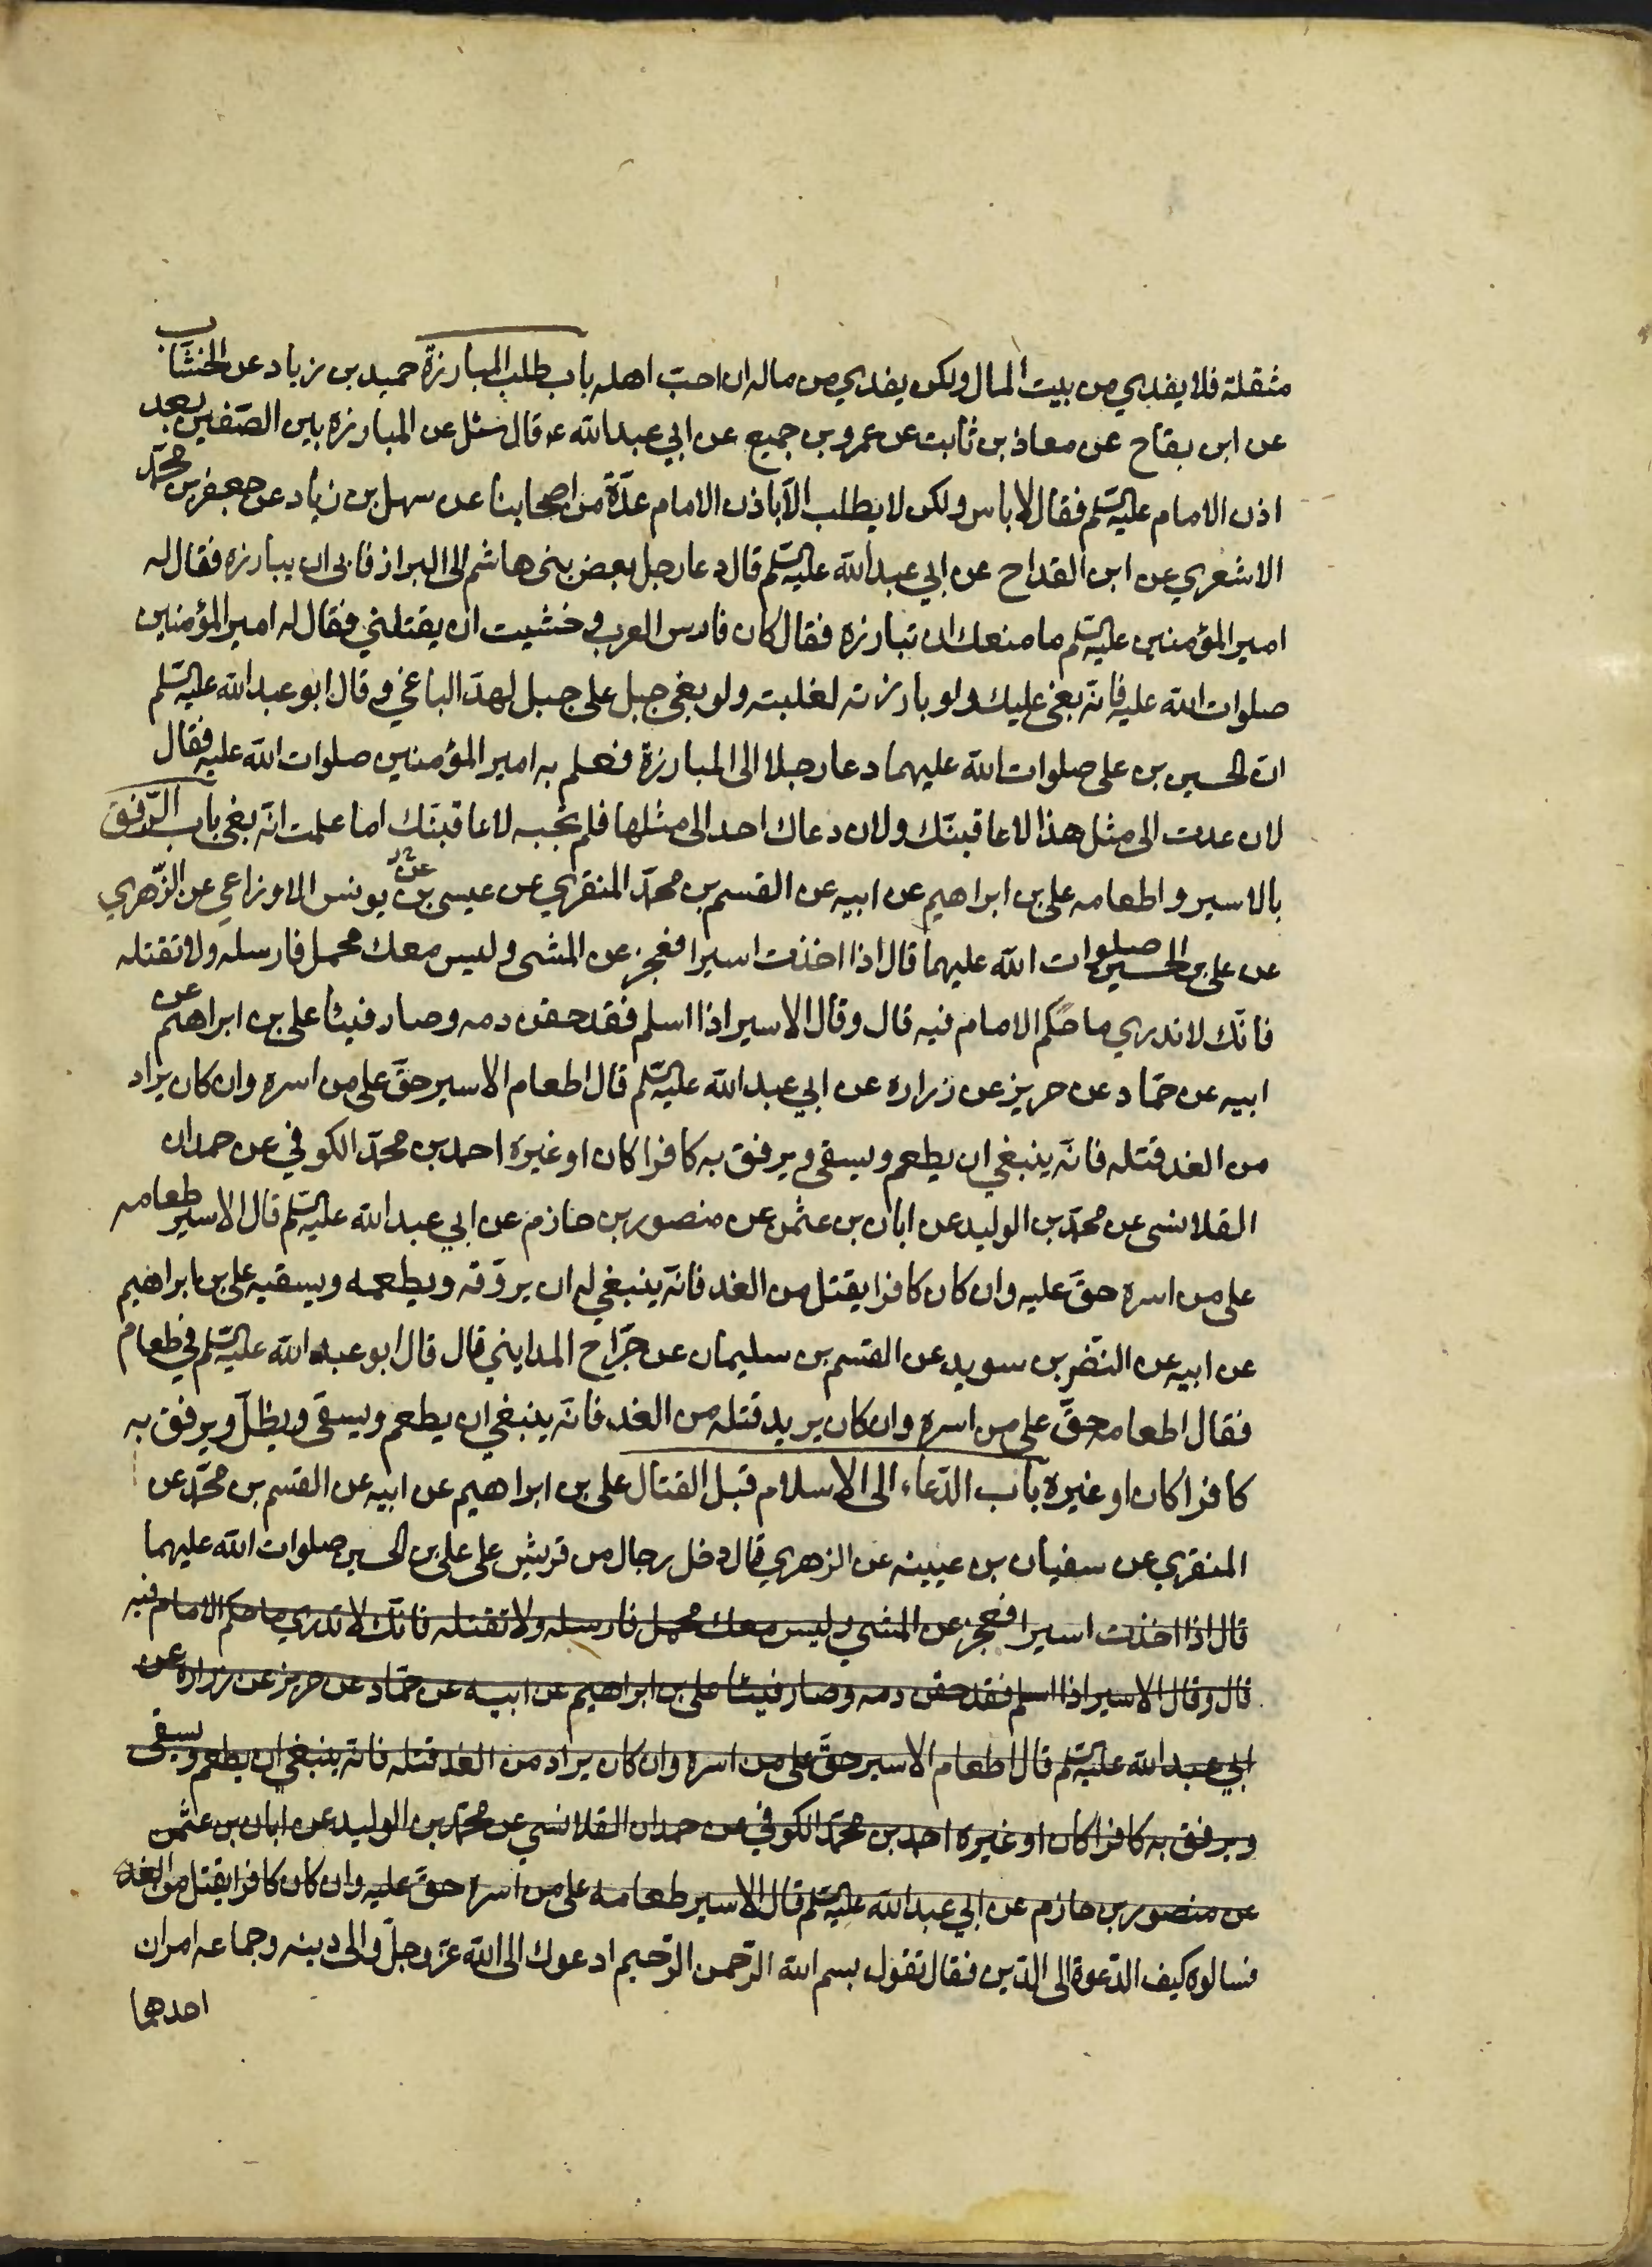 مثقلة فلا يفدي من بيت المال ولكن يفدي من ماله ان احبّ اهله باب طلب المبارزة حميد بن زياد عن الخشّاب
عن ابن بقاح عن معاذ بن ثابت عن عمرو بن جميع عن ابي عبد الله ع قال سئل عن المبارزه بين الصّفين بعد
اذن الامام عليه السّلم فقال لا باس ولكن لا يطلب الّا باذن الامام عدّة من اصحابنا عن سهل بن زياد عن جعفر بن محمّد
الاشعري عن ابن القداح عن ابي عبد الله عليه السّلم قال دعا رجل بعض بني هاشم الى البراز فابى ان يبارزه فقال له
امير المؤمنين عليه السّلم ما منعك ان تبارزه فقال كان فارس العرب و خشيت ان يقتلني فقال له امير المؤمنين
صلوات الله عليه فانّه بغى عليك ولو بارزته لغلبته ولو بغى جبل على جبل لهدّ الباغي و قال ابو عبد الله عليه السّلم
انّ الحسين بن على صلوات الله عليهما دعا رجلا الى المبارزة فعلم به امير المؤمنين صلوات الله عليه فقال
لان عدت الى مثل هذا لاعاقبنّك ولان دعاك احد الى مثلها فلم تجبه لاعاقبنّك اما علمت انّه بغى باب الرّفق
بالاسير و اطعامه على بن ابراهيم عن ابيه عن القسم بن محمّد المنقري عن عيسى بن عن يونس الاوزاعي عن الزّهري
عن على بن الحسين صلوات الله عليهما قال اذا اخذت اسيرا فعجز عن المشى و ليس معك محمل فارسله ولا تقتله
فانّك لا تدري ما حكم الامام فيه قال و قال الاسير اذا اسلم فقد حقن دمه و صار فيئا على بن ابراهيم عن
ابيه عن حمّاد عن حريز عن زراره عن ابي عبد الله عليه السّلم قال اطعام الاسير حقّ على من اسره وان كان يراد
من الغد قتله فانّه ينبغي ان يطعم و يسقى و يرفق به كافرا كان او غيره احمد بن محمّد الكوفي عن حمدان
القلانسى عن محمّد بن الوليد عن ابان بن عثمن عن منصور بن حازم عن ابي عبد الله عليه السّلم قال الاسير طعامه
على من اسره حقّ عليه وان كان كافرا يقتل من الغد فانّه ينبغي له ان يروّقه و يطعمه و يسقيه على بن ابراهيم
عن ابيه عن النضر بن سويد عن القسم بن سليمان عن جرّاح المدايني قال قال ابو عبد الله عليه السّلم في طعام
فقال اطعامه حقّ على من اسره وان كان يريد قتله من الغد فانّه ينبغي ان يطعم و يسقى و يظلّ و يرفق به
كافرا كان او غيره باب الدّعاء الى الاسلام قبل القتال على بن ابراهيم عن ابيه عن القسم بن محمّد عن
المنقري عن سفيان بن عيينه عن الزهري قال دخل رجال من قريش على على بن الحسين صلوات الله عليهما
قال اذا اخذت اسيرا فعجز عن المشي و ليس معك محمل فارسله ولا تقتله فانّك لا تدري ما حكم الامام فيه
قال و قال الاسير اذا اسلم فقد حقن دمه و صار فيئا على بن ابراهيم عن ابيه عن حمّاد عن حريز عن زراره عن
ابي عبد الله عليه السّلم قال اطعام الاسير حقّ على من اسره وان كان يراد من الغد قتله فانّه ينبغي ان يطعم و يسقى
و يرفق به كافرا كان او غيره احمد بن محمّد الكوفي عن حمدان القلانسي عن محمّد بن الوليد عن ابان بن عثمن
عن منصور بن حازم عن ابي عبد الله عليه السّلم قال الاسير طعامه على من اسره حقّ عليه وان كان كافرا يقتل من الغد
فسالوه كيف الدّعوة الى الدّين فقال تقول بسم الله الرّحمن الرّحيم ادعوك الى الله عزّ و جلّ و الى دينه و جماعه امران
احدهما